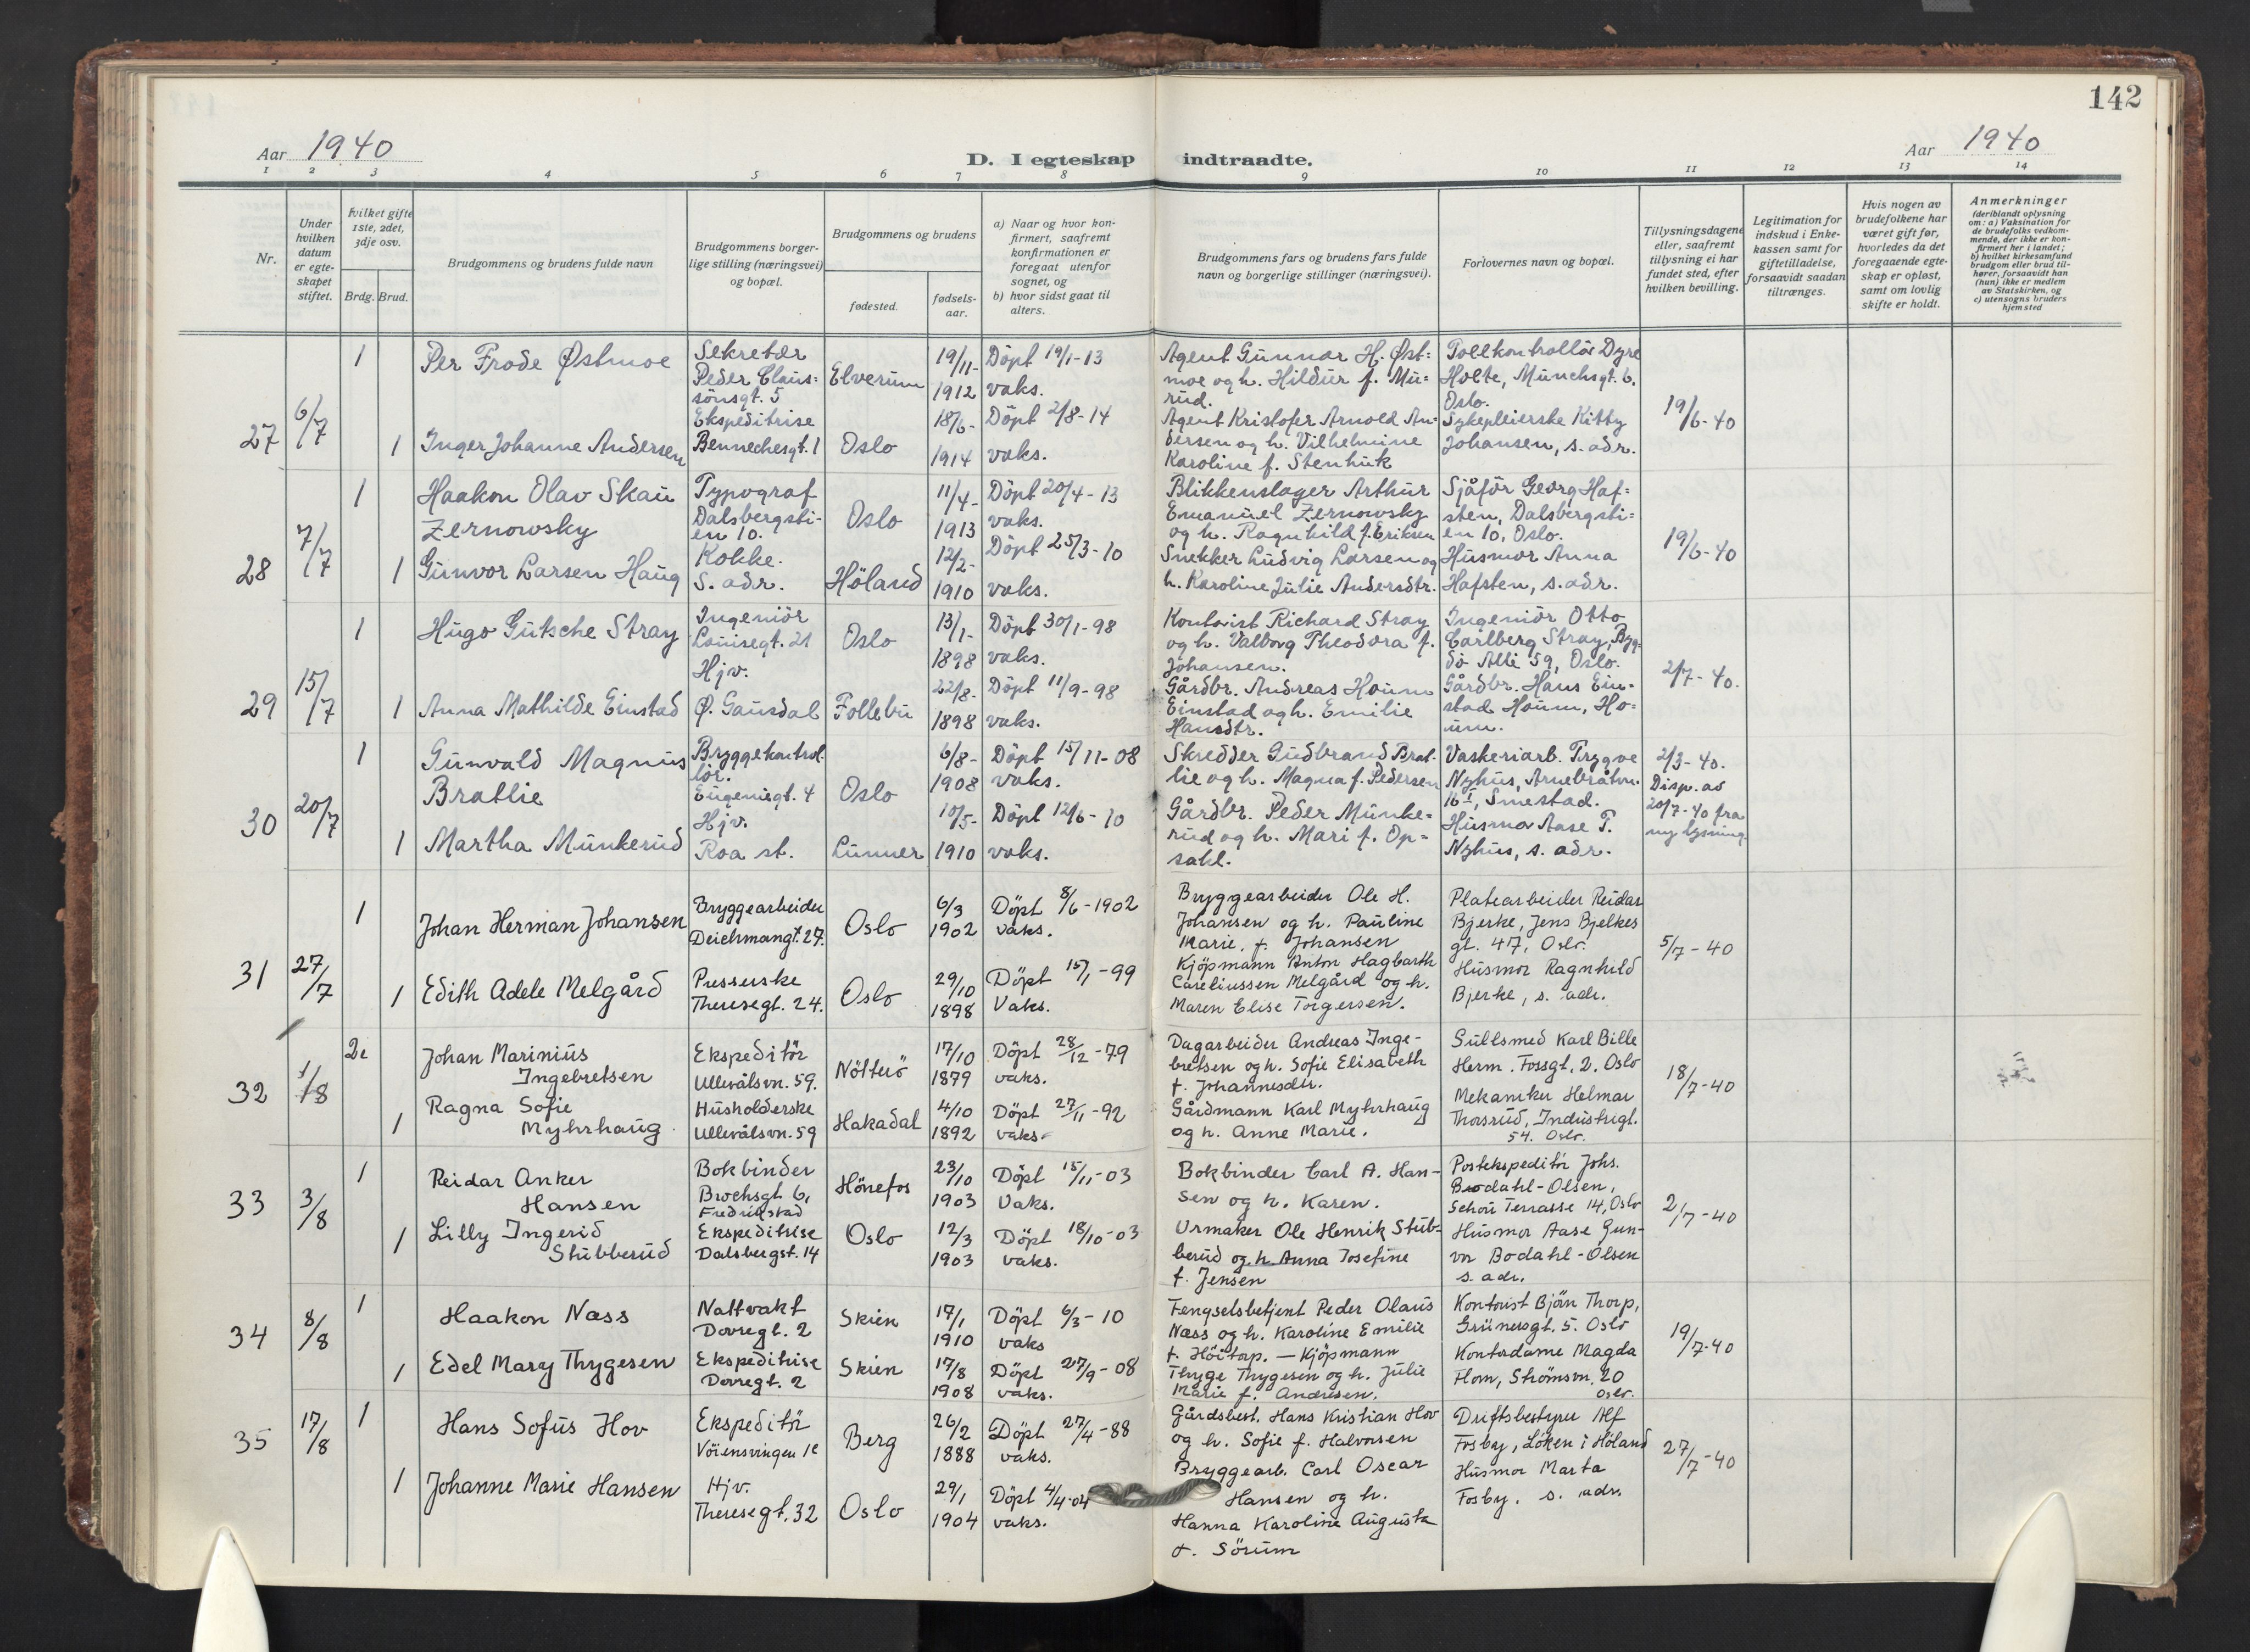 142
Aar 1940
D. I egteskap indtraadte.
Aar 1940
1 2 3 4 5 6 7 8 9 10 11 12 13 14
Nr.
Under hvilken datum er egteskapet stiftet.
hvilket gifte 1ste, 2det, 3dje osv.
Brdg. Brud.
Brudgommens og brudens fulde navn
Brudgommens borgerlige stilling (næringsvei) og bopæl.
Brudgommens og brudens
fødested.
fødselsaar.
a) Naar og hvor konfirmert, saafremt konfirmationen er foregaat utenfor sognet, og
b) hvor sidst gaat til alters.
Brudgommens fars og brudens fars fulde navn og borgerlige stillinger (næringsvei).
Forlovernes navn og bopæl.
Tillysningsdagene eller, saafremt tillysning ei har fundet sted, efter hvilken bevilling.
Legitimation for indskud i Enkekassen samt for giftetilladelse, forsaavidt saadan tiltrænges.
Hvis nogen av brudefolkene har været gift før, hvorledes da det foregaaende egteskap er opløst, samt om lovlig skifte er holdt.
Anmerkninger
(deriblandt oplysning om: a) Vaksination for de brudefolks vedkommende, der ikke er konfirmert her i landet; b) hvilket kirkesamfund brudgom eller brud tilhører, forsaavidt han (hun) ikke er medlem av Statskirken, og c) utensogns bruders hjemsted
27 6/7
1 Per Frode Østmoe
Sekretær
Peder Claussönsgt. 5
Elverum
19/11- 1912
Döpt 19/1-13
vaks.
Agent Gunnar H. Øst=
moe og h. Hildur f. Mu=
rud.
Tollkontrollör Dyre
Holte, Munchsgt. 6.
Oslo.
19/6-40
1 Inger Johanne Andersen
Ekspeditrise
Bennechesgt. 1
Oslo
18/6- 1914
Döpt 2/8-14
vaks.
Agent Kristofer Arnold An=
dersen og h. Vilhelmine
Karoline f. Stenhuk
Sykepleierske Kitty
Johansen, s. adr.
28 7/7
1 Haakon Olav Skau
Zernowsky
Typograf
Dalsbergsti-
en 10.
Oslo
11/4- 1913
Döpt 20/4-13
vaks.
Blikkenslager Arthur
Emanuel Zernowsky
og h. Ragnhild f. Eriksen
Sjåför Georg Haf=
sten, Dalsbergsti=
en 10, Oslo.
19/6-40
1 Gunvor Larsen Haug
Kokke.
S. adr.
Höland
12/2- 1910
Döpt 25/3-10
vaks.
Snekker Ludvig Larsen og
h. Karoline Julie Andersdtr.
Husmor Anna
Hafsten, s. adr.
29 15/7
1 Hugo Gutsche Stray
Ingeniör
Louisegt. 21
Oslo
13/1- 1898
Döpt 30/1-98
vaks.
Kontorist Richard Stray
og h. Valborg Theodora f.
Johansen.
Ingeniör Otto
Carlberg Stray, Byg=
dö Allé 59, Oslo.
2/7-40.
1 Anna Mathilde Einstad
Hjv.
Ø. Gausdal
Follebu
22/8- 1898
Döpt 11/9-98
vaks.
Gårdbr. Andreas Houm
Einstad og h. Emilie
Hansdtr.
Gårdbr. Hans Ein-
stad Houm, Ho=
um.
30 20/7
1 Gunvald Magnus
Bratlie
Bryggekontrol-
lör.
Eugeniegt. 4
Oslo
6/8- 1908
Döpt 15/11-08
vaks.
Skredder Gudbrand Brat-
lie og h. Magna f. Pedersen
Vaskeriarb. Trygve
Nyhus, Arnebråtvn.
16 I, Smestad.
2/3-40.
Disp. av
20/7-40 fra
ny lysning.
1 Martha Munkerud
Hjv.
Roa st.
Lunner
10/5- 1910
Döpt 12/6-10
vaks.
Gårdbr. Peder Munke=
rud og h. Mari f. Op=
sahl.
Husmor Aase T.
Nyhus, s. adr.
31 27/7
1 Johan Herman Johansen
Bryggearbeider
Deichmangt. 27.
Oslo
6/3 1902
Döpt 8/6-1902
vaks.
Bryggearbeider Ole H.
Johansen og h. Pauline
Marie, f. Johansen
Platearbeider Reidar
Bjerke, Jens Bjelkes
gt. 47, Oslo.
5/7-40
1 Edith Adele Melgård
Presserske
Theresegt. 24.
Oslo
29/10 1898
Döpt 15/1-99
Vaks.
Kjöpmann Anton Hagbarth
Careliussen Melgård og h.
Maren Elise Torgersen.
Husmor Ragnhild
Bjerke, s. adr.
32 1/8
2e Johan Marinius
Ingebretsen
Ekspeditör
Ullevålsvn. 59.
Nötterö
17/10 1879
Döpt 28/12-79
vaks.
Dagarbeider Andreas Inge-
bretsen og h. Sofie Elisabeth
f. Johannesdtr.
Gullsmed Karl Bille
Herm. Fossgt. 2. Oslo
18/7-40
1 Ragna Sofie
Myhrhaug.
Husholderske
Ullevålsvn. 59
Hakadal
4/10 1892
Döpt 27/11-92
vaks.
Gårdmann Karl Myhrhaug
og h. Anne Marie.
Mekaniker Helmar
Thorsrud, Industrigt.
54. Oslo.
33 3/8
1 Reidar Anker
Hansen
Bokbinder
Brochsgt 6,
Fredrikstad
Hönefos
23/10 1903
Döpt 15/11-03
Vaks.
Bokbinder Carl A. Han-
sen og h. Karen.
Postekspeditör Johs.
Bodahl-Olsen,
Schou Terrasse 14, Oslo
2/7-40
1 Lilly Ingerid
Stubberud
Ekspeditrise
Dalsbergst. 14
Oslo
12/3 1903
Döpt 18/10-03
vaks.
Urmaker Ole Henrik Stub-
berud og h. Anna Josefine
f. Jensen
Husmor Aase Gun-
vor Bodahl-Olsen
s. adr.
34 8/8
1 Haakon Næss
Nattvakt
Dovregt. 2
Skien
17/1 1910
Döpt 6/3-10
vaks
Fengselsbetjent Peder Olaus
Næss og h. Karoline Emilie
f. Höitorp. — Kjöpmann
Kontorist Björn Thorp,
Grünersgt. 5. Oslo
19/7-40
1 Edel Mary Thygesen
Ekspeditrise
Dovregt. 2
Skien
17/8 1908
Döpt 27/9-08
vaks.
Thyge Thygesen og h. Julie
Marie f. Andresen.
Kontordame Magda
Flom, Strømsvn. 20
Oslo.
35 17/8
1 Hans Sofus Hov
Ekspeditör
Vöiensvingen 1c
Berg
26/2 1888
Döpt 27/4-88
vaks.
Gårdsbest. Hans Kristian Hov
og h. Sofie f. Halvorsen
Driftsbestyrer Alf
Fosby, Löken i Höland
27/7-40
1 Johanne Marie Hansen
Hjv.
Theresegt. 32
Oslo
29/1 1904
Döpt 4/4-04
vaks.
Bryggearb. Carl Oscar
Hansen og h.
Hanna Karoline Augusta
f. Sörum
Husmor Marta
Fosby. s. adr.